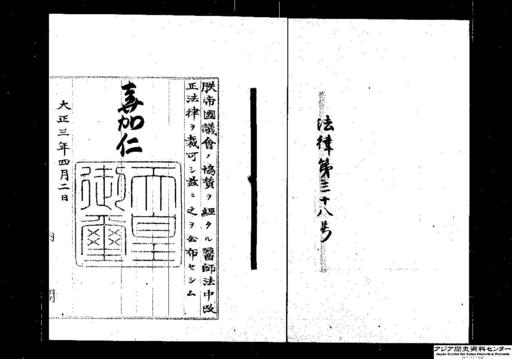 法律第三十八号
朕帝國議會ノ協贊ヲ經タル醫師法中改
正法律ヲ裁可シ茲ニ之ヲ公布セシム
嘉仁
天皇
御璽
大正三年四月二日
アジア歴史資料センター
Japan Center for Asian Historical Records